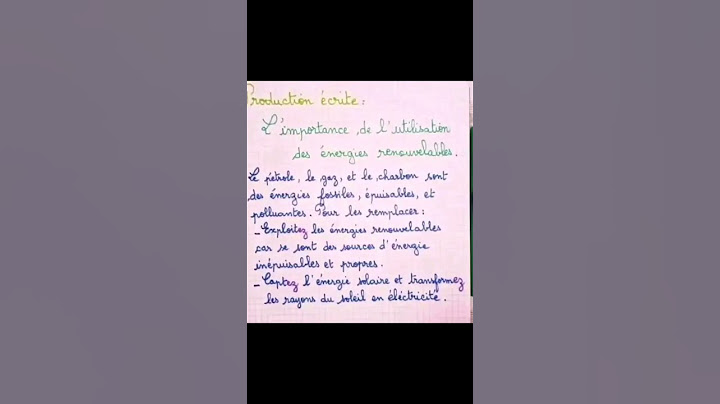 Production écrite :
L'importance de l'utilisation
des énergies renouvelables.
Le pétrole, le gaz, et le charbon sont
des énergies fossiles, épuisables, et
polluantes. Pour les remplacer :
- Exploitez les énergies renouvelables
car se sont des sources d'énergie
inépuisables et propres.
- Captez l'énergie solaire et transformez
les rayons du soleil en éléctricité.